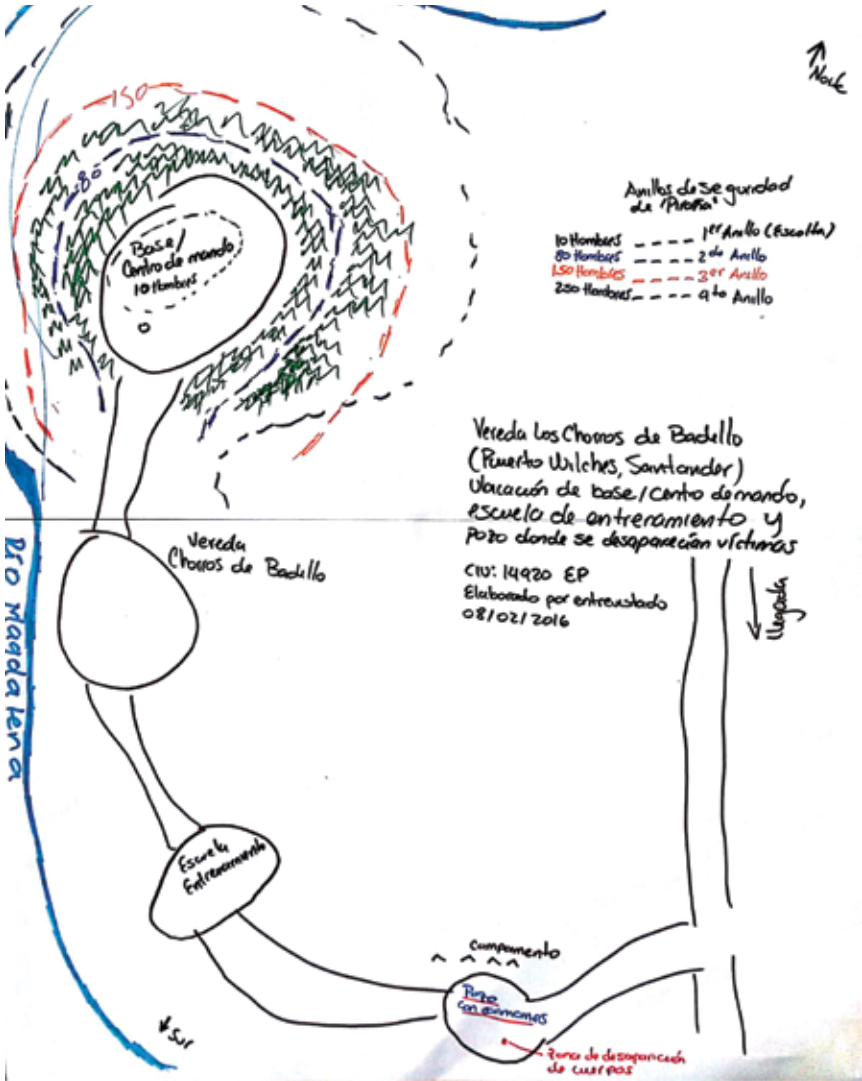 Norte
150
80
Base/
Centro de mando
10 Hombres
Anillos de seguridad
de
10 Hombres ---- 1er Anillo (Escolta)
80 Hombres ---- 2do Anillo
150 Hombres ---- 3er Anillo
250 Hombres ---- 4to Anillo
Vereda Los Chorros de Badillo
(Puerto Wilches, Santander)
Ubicación de base/centro de mando,
escuela de entrenamiento y
pozo donde se desaparecían víctimas
CIU: 14920 EP
Elaborado por entrevistado
08/02/2016
Vereda
Chorros de Badillo
Llegada
Río Magdalena
Escuela
Entrenamiento
Campamento
Sur
Pozo
con
Zona de desaparición
de cuerpos